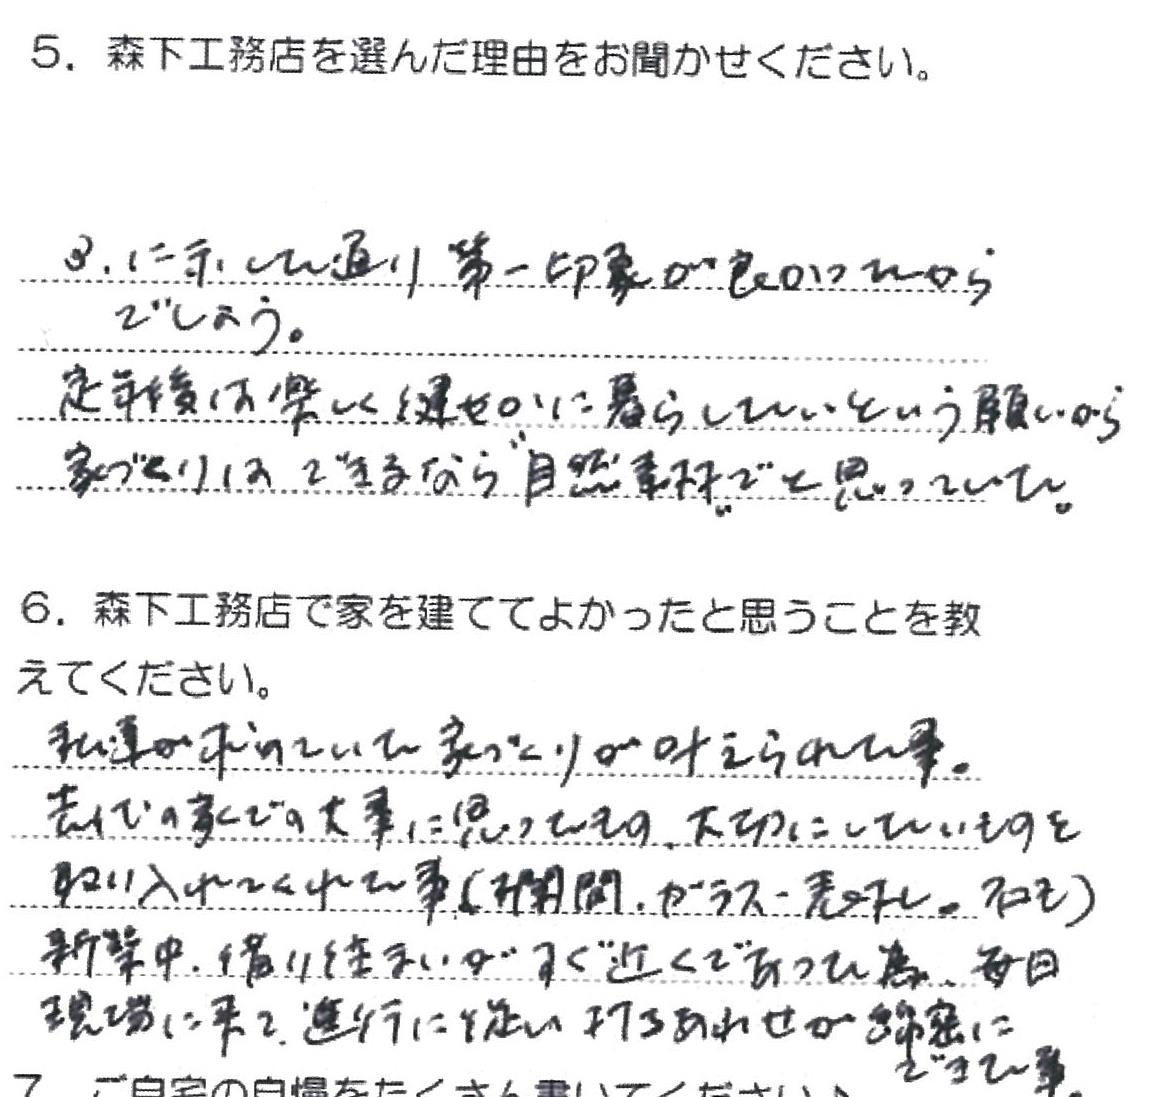 5．森下工務店を選んだ理由をお聞かせください。
3.に示した通り 第一印象が良かったから
でしょう。
定年後は楽しく健やかに暮らしたいという願いから
家づくりは できるなら"自然素材"でと思っていた。
6．森下工務店で家を建ててよかったと思うことを教
えてください。
私達が求めていた 家づくりが叶えられた事。
の家での大事に思ってたもの、大切にしたいものを
取り入れてくれた事(欄間、ガラス
新築中、借り住まいがすぐ近くであった為、毎日
現場に来て、進行に従い 打ちあわせが綿密に
できた事。
7．ご自宅の自慢をたくさん書いてください♪